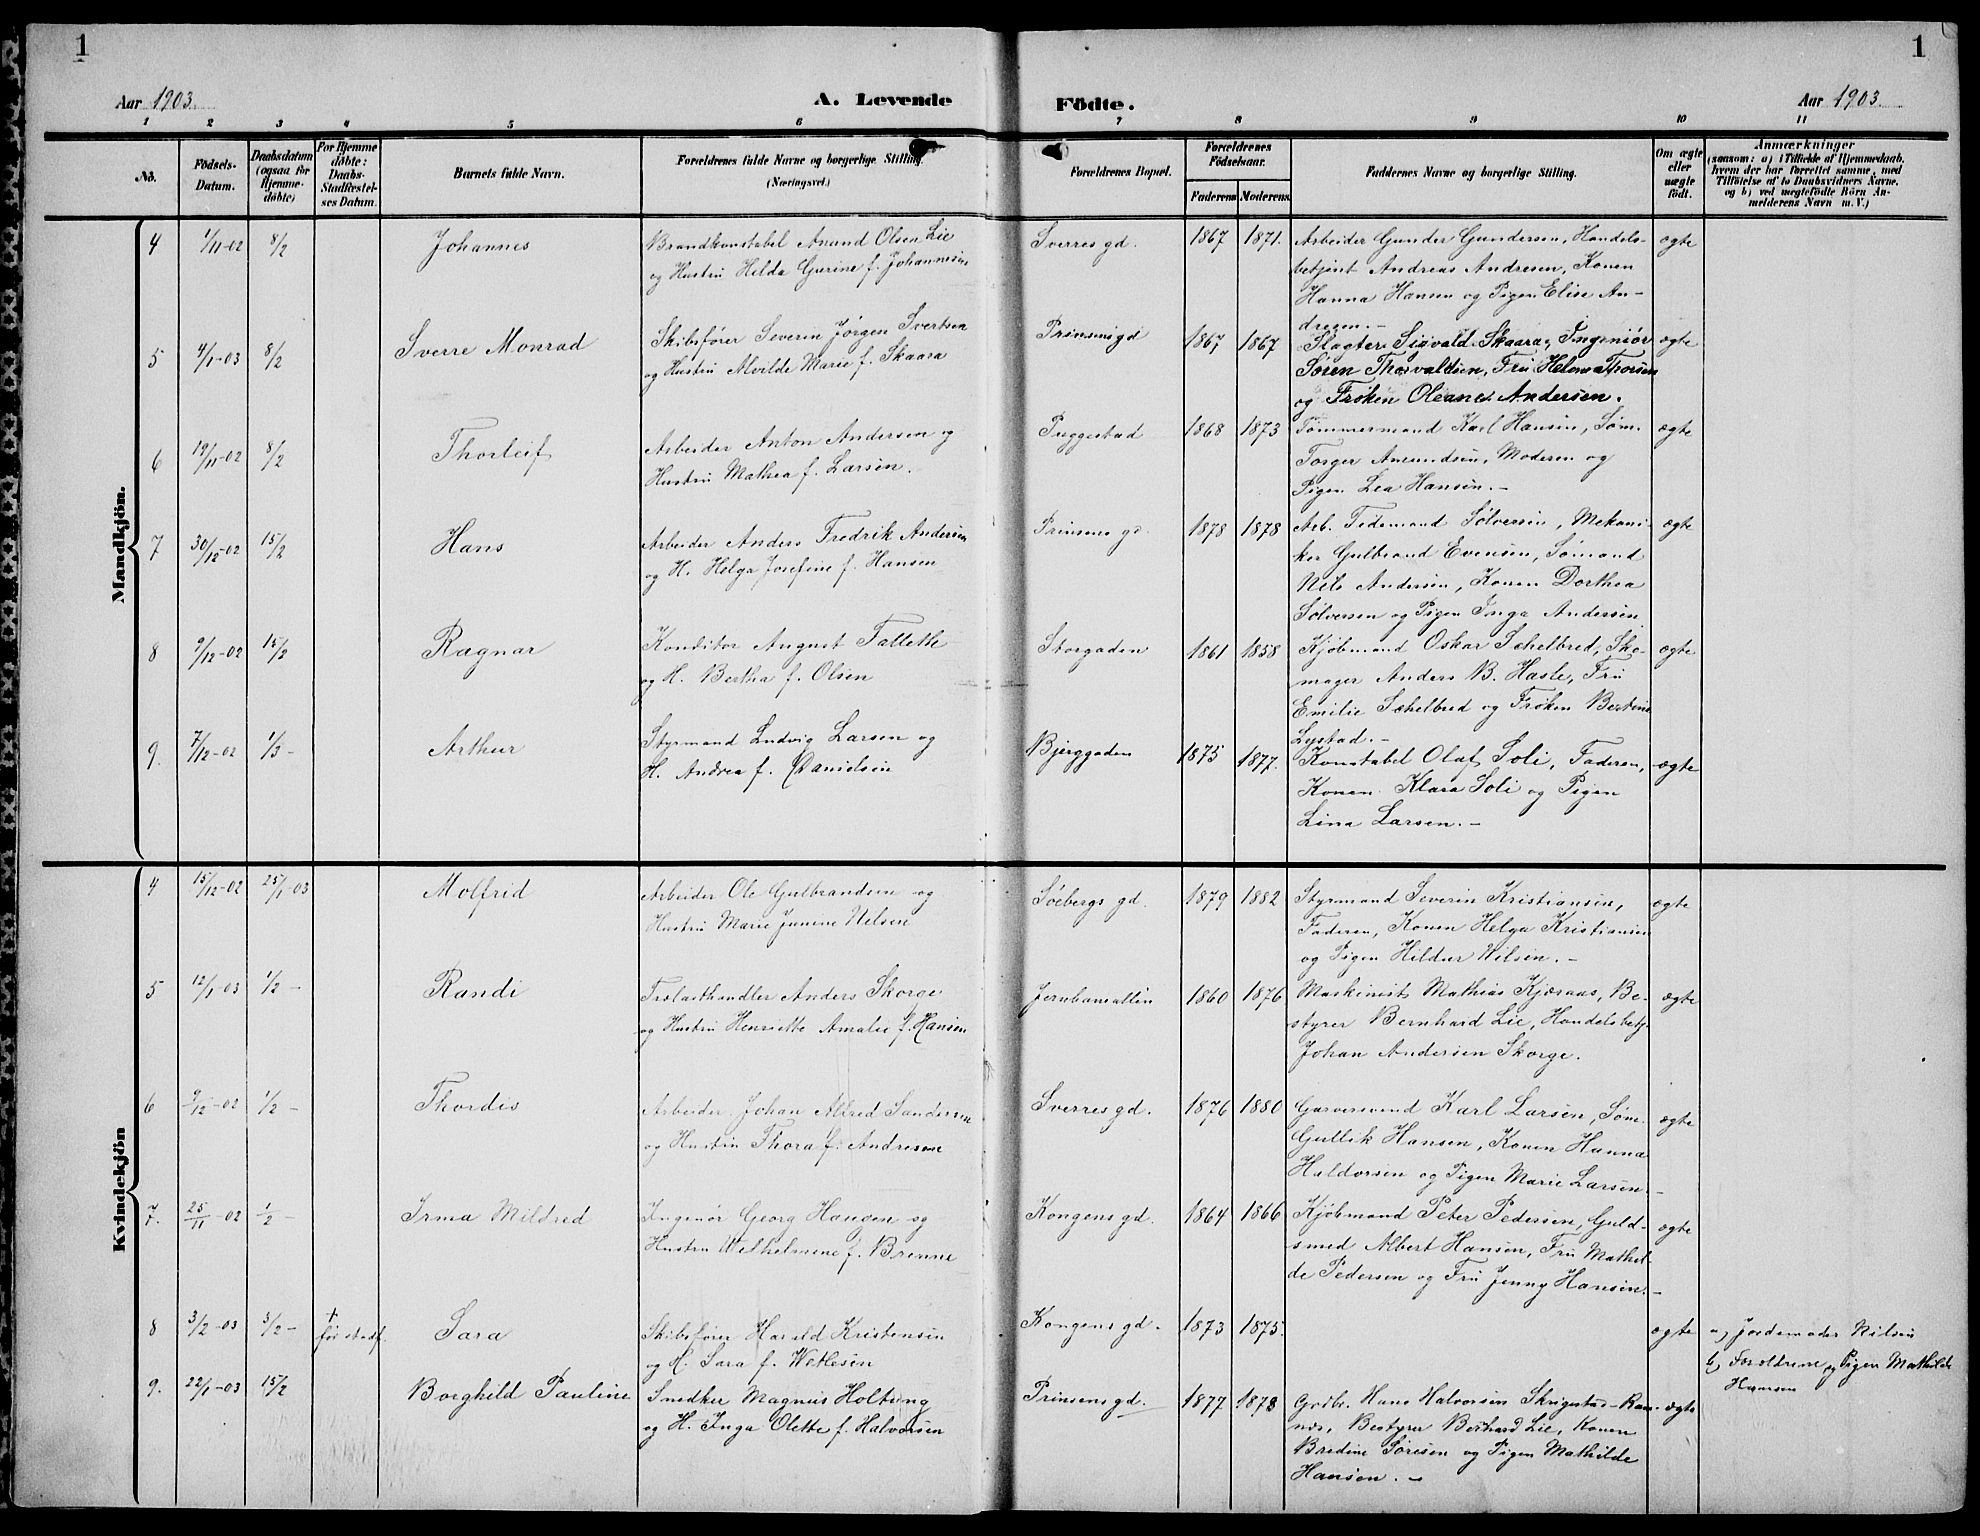 1
1
Aar 1903.
A. Levende
Födte.
Aar 1903.
1 2 3 4 5 6 7 8 9 10 11
No.
Födsels-Datum.
Daabsdatum (ogsaa for Hjemme-döbte)
For Hjemme döbte: Daabs-Stadfæstel-ses Datum.
Barnets fulde Navn.
Forældrenes fulde Navne og borgerlige Stilling. (Næringsvei.)
Forældrenes Bopæl.
Forældrenes Födselsaar.
Faderens
Moderens
Faddernes Navne og borgerlige Stilling.
Om ægte eller uægte födt.
Anmærkninger
(saasom: a) i Tilfælde af Hjemmedaab,
hvem der har forrettet samme, med
Tilföielse af to Daabsvidners Navne,
og b) ved uægtefödte Börn An-
melderens Navn m. V.)
Mandkjön.
4 1/11-02 8/2 Johannes
Brandkonstabel Anund Olsen Lie
og Hustru Hilda Gurine f. Johannesen
Sverres gd. 1867 1871.
Arbeider Gunder Gundersen, Handels-
betjent Andreas Andresen, Konen
Hanna Hansen og Pigen Elise An-
dresen.-
ægte
5 4/1-03 8/2 Sverre Monrad
Skibsfører Severin Jørgen Svertsen
og Hustru Alvilde Marie f. Skaara
Prinsensgd 1867 1867
Slagter Sigvald Skaara, Ingeniør
Søren Thorvaldsen, Fru Helena Thorsen
og Frøken Oleane Andersen.
ægte
6 19/11-02 8/2 Thorleif
Arbeider Anton Andersen og
Hustru Mathea f. Larsen.
Puggestad 1868 1873
Tømmermand Karl Hansen, Søm.
Torger Amundsen, Moderen og
Pigen Lea Hansen.-
ægte
7 30/12-02 15/2 Hans
Arbeider Anders Fredrik Andersen
og H. Helga Josefine f. Hansen
Prinsens gd 1878 1878
Arb. Tidemand Sølversen, Mekani-
ker Gulbrand Evensen, Sømand
Nels Andersen, Konen Dorthea
Sølversen og Pigen Inga Andersen
ægte
8 9/12-02 15/2 Ragnar
Konditor August Tallethe
og H. Bertha f. Olsen
Storgaden 1861 1858
Kjøbmand Oskar Schelbred, Sko-
mager Anders B. Hasle, Fru
Emilie Schelbred og Frøken Bertine
Lystad.-
ægte
9. 7/12-02 1/3- Arthur
Styrmand Ludvig Larsen og
H. Andrea f. Danielsen
Bjerggaden 1875 1877.
Konstabel Olaf Soli, Faderen,
Konen Klara Soli og Pigen
Lina Larsen.-
ægte
Kvindekjön
4 15/12-02 25/1-03 Molfrid
Arbeider Ole Gulbrandsen og
Hustru Marie Janine Nilsen
Søebergs gd. 1879 1882
Styrmand Severin Kristiansen,
Faderen, Konen Helga Kristiansen
og Pigen Hildur Nilsen.-
ægte
5 12/1-03 1/2- Randi
Trælasthandler Anders Skorge
og Hustru Henriette Amalie f. Hansen
Jernbanealleen 1860 1876
Maskinist Mathias Kjæraas, Be-
styrer Bernhard Lie, Handelsbetj.
Johan Andersen Skorge.
ægte
6 9/12-02 1/2- Thordis
Arbeider Johan Alfred Sandersen
og Hustru Thora f. Andresen
Sverres gd. 1876 1880
Garversvend Karl Larsen, Søm.
Gullik Hansen, Konen Hanna
Haldorsen og Pigen Marie Larsen.-
ægte
7. 25/11-02 1/2- Irma Mildred
Ingeniør Georg Haugen og
Hustru Wilhelmine f. Brenne
Kongens gd. 1864 1866
Kjøbmand Peter Pedersen, Guld-
smed Albert Hansen, Fru Mathil-
de Pedersen og Fru Jenny Hansen.-
ægte
8 3/2-03 3/2- † før stadf. Sara
Skibsfører Harald Kristensen
og H. Sara f. Wetlesen
Kongens gd. 1873 1875.
ægte
a) Jordemoder Nilsen
b) Forældrene og Pigen Mathilde
Hansen
9. 22/1-03 15/2 Borghild Pauline
Snedker Magnus Holtung
og H. Inga Olette f. Halvorsen
Prinsensgd. 1877 1878
Grdbr. Hans Halvorsen Skrigstad-Ram-
næs, Bestyrer Bernhard Lie, Konen
Bredine Sørensen og Pigen Mathilde
Hansen.-
ægte